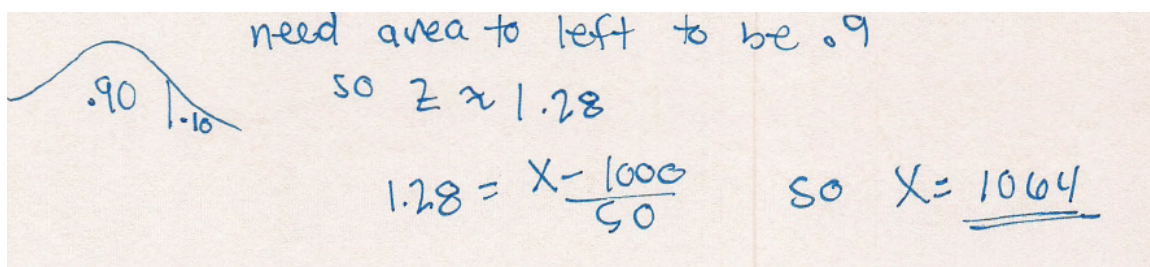 need area to left to be .9
.90 .10
so z ≈ 1.28
1.28 = X - 1000 / 50 so X = 1064